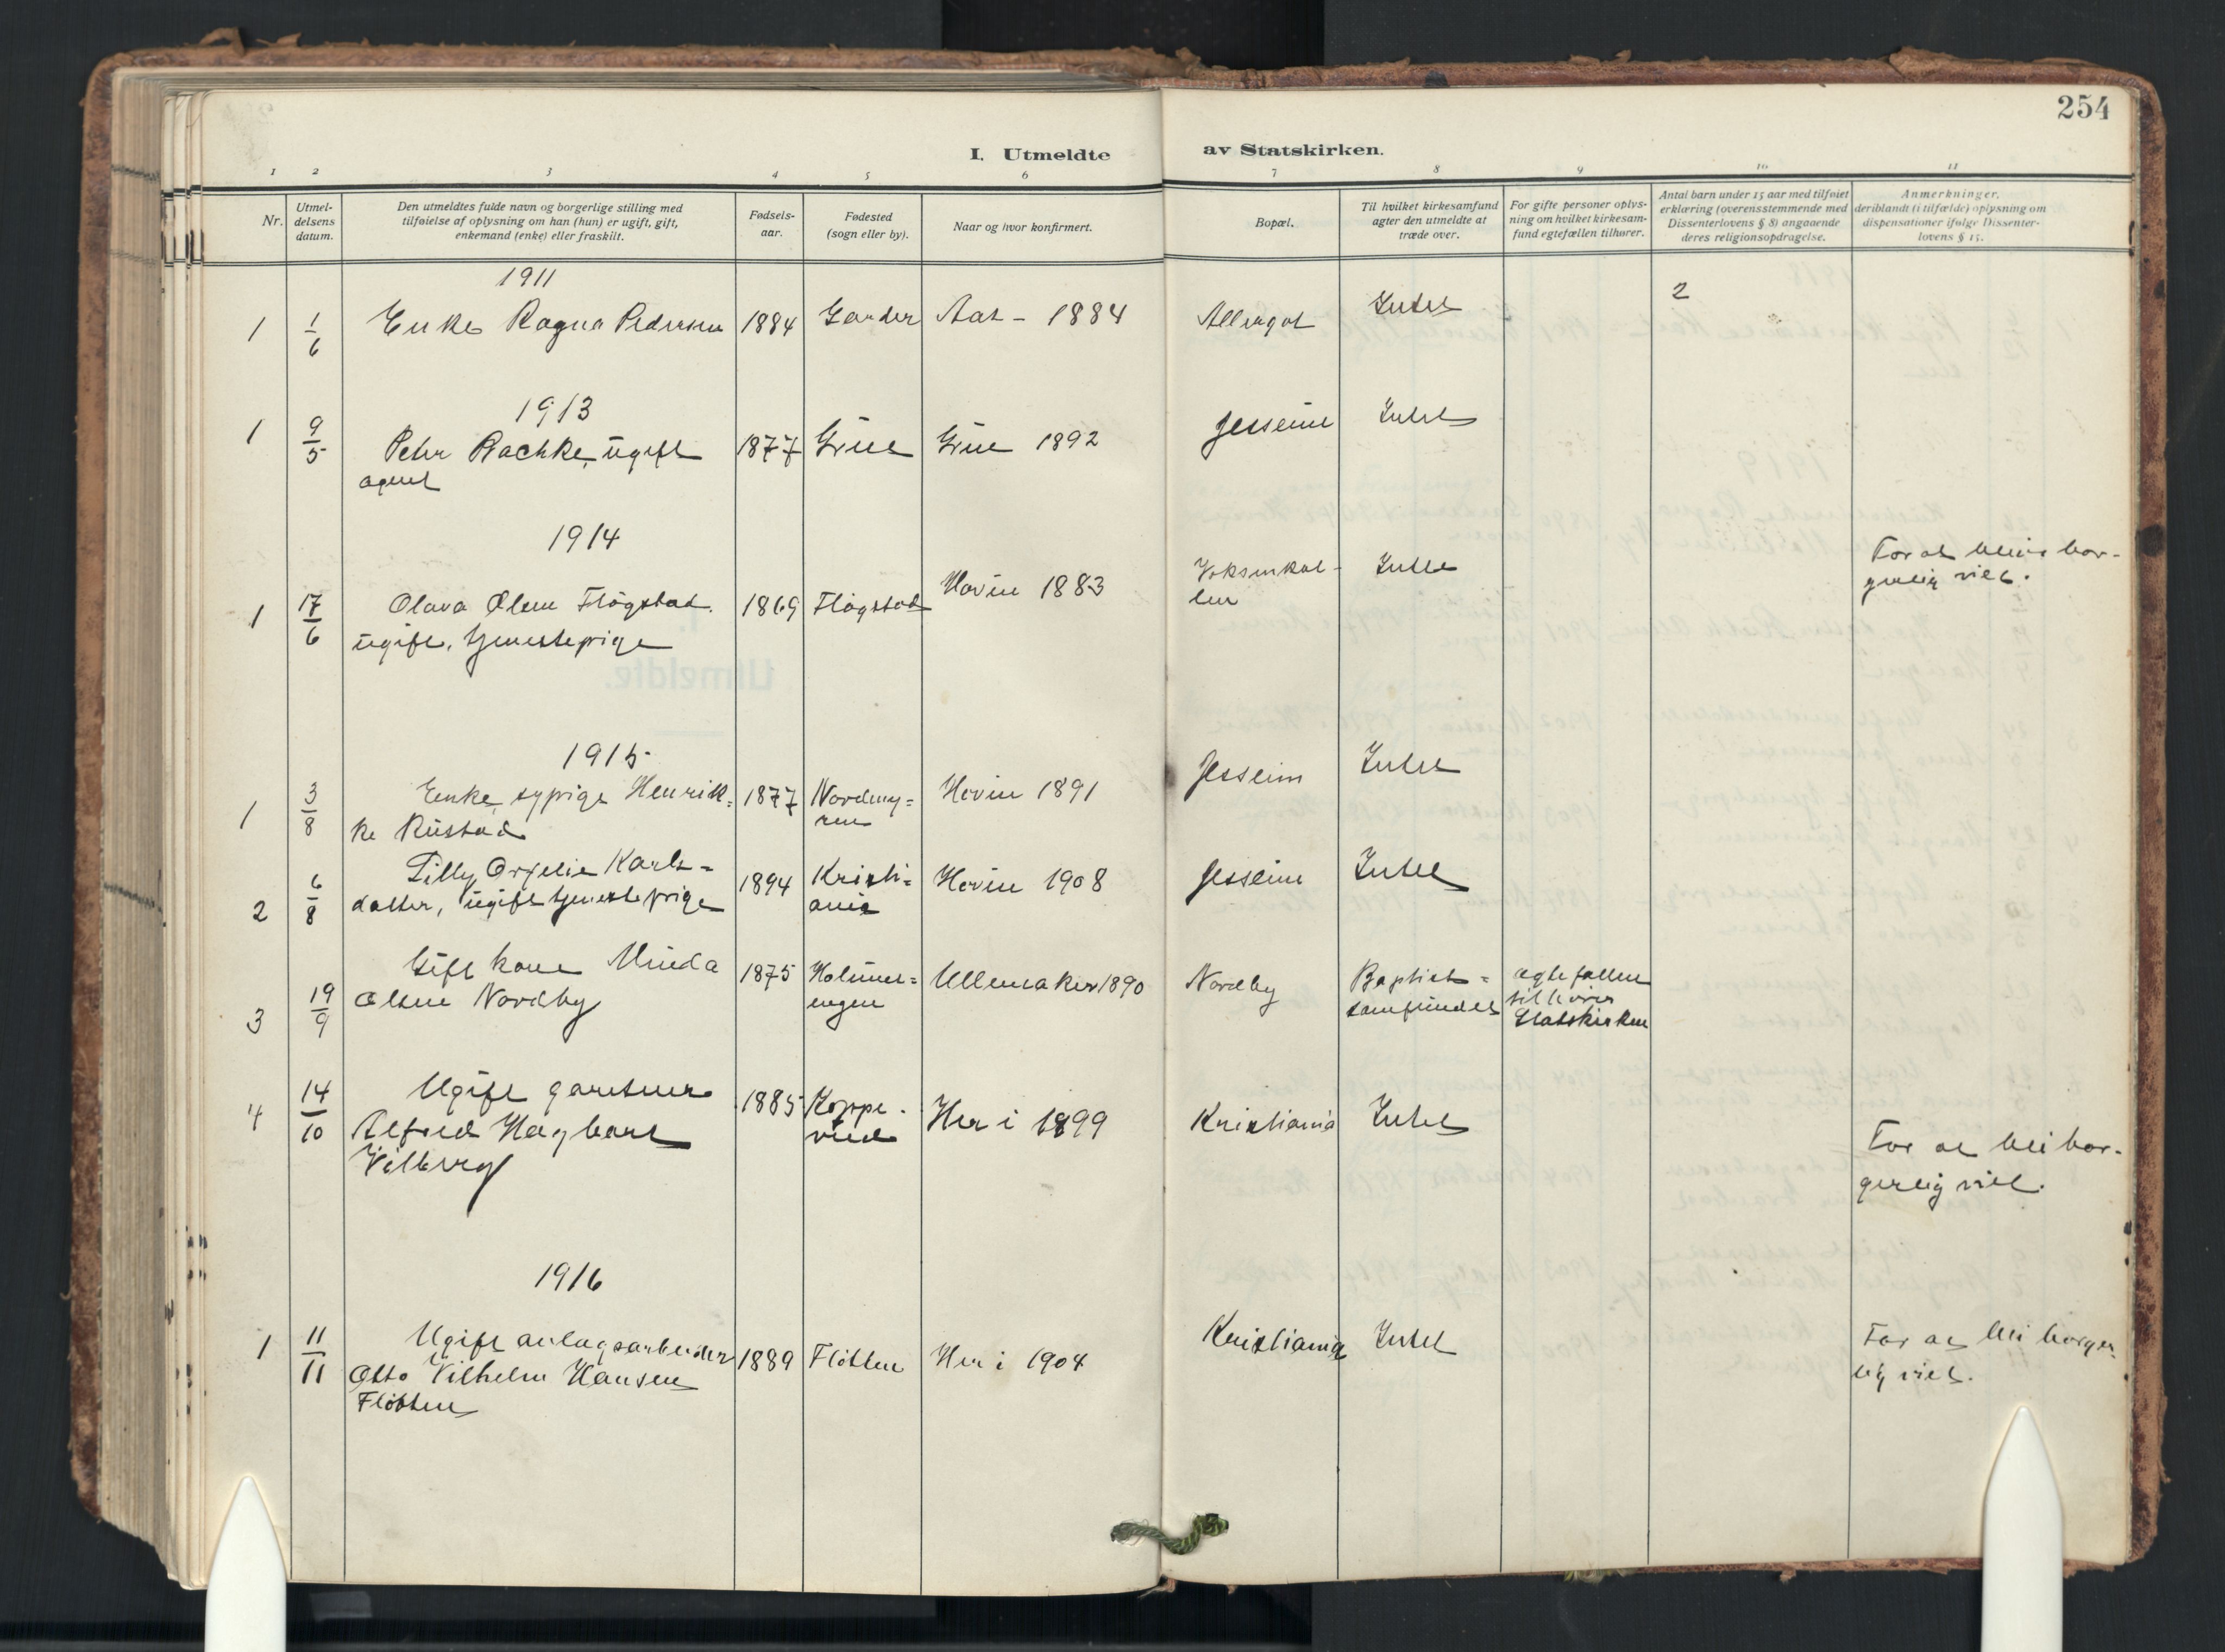 254
I. Utmeldte av Statskirken.
1 2 3 4 5 6 7 8 9 10 11
Nr.
Utmel-
delsens
datum.
Den utmeldtes fulde navn og borgerlige stilling med
tilføielse af oplysning om han (hun) er ugift, gift,
enkemand (enke) eller fraskilt.
Fødsels-
aar.
Fødested
(sogn eller by).
Naar og hvor konfirmert.
Bopæl.
Til hvilket kirkesamfund
agter den utmeldte at
træde over.
For gifte personer oplys-
ning om hvilket kirkesam-
fund egtefællen tilhører.
Antal barn under 15 aar med tilføiet
erklæring (overensstemmende med
Dissenterlovens § 8) angaaende
deres religionsopdragelse.
Anmerkninger,
deriblandt (i tilfælde) oplysning om
dispensationer ifølge Dissenter-
lovens § 15.
1911
1 1/6 Enke Ragna Pedersen 1884 Garder Aas - 1884 Allergot Intet 2
1913
1 9/5 Peter Rachke, ugift 1877 Grue Grue 1892 Jesseim Intet
agent
1914
1 17/6 Olava Olsen Flögstad. 1869 Flögstad Hovin 1883 Voksenkol- Intet For at blive bor-
ugift, tjenestepige len gerlig viet.
1915
1 3/8 Enke, sypige Henrik- 1877 Nordmy= Hovin 1891 Jesseim Intet
ke Rustad ren
2 6/8 Lilly Orfelie Karls= 1894 Kristi= Hovin 1908 Jesseim Intet
datter, ugift tjenestepige ania
3 19/9 Gift kone Minda 1875 Holmes= Ullensaker 1890 Nordby Baptist= egtefællen
Olsen Nordby engen samfundet tilhører
Statskirken
4 14/10 Ugift gartner 1885 Koppe- Her i 1899 Kristiania Intet
Alfred Hagbart rud For at bli bor-
Vilberg gerlig viet.
1916
1 11/11 Ugift anlægsarbeider 1889 Fløtten Her i 1904 Kristiania Intet For at bli borger-
Otto Vilhelm Hansen lig viet.
Fløtten